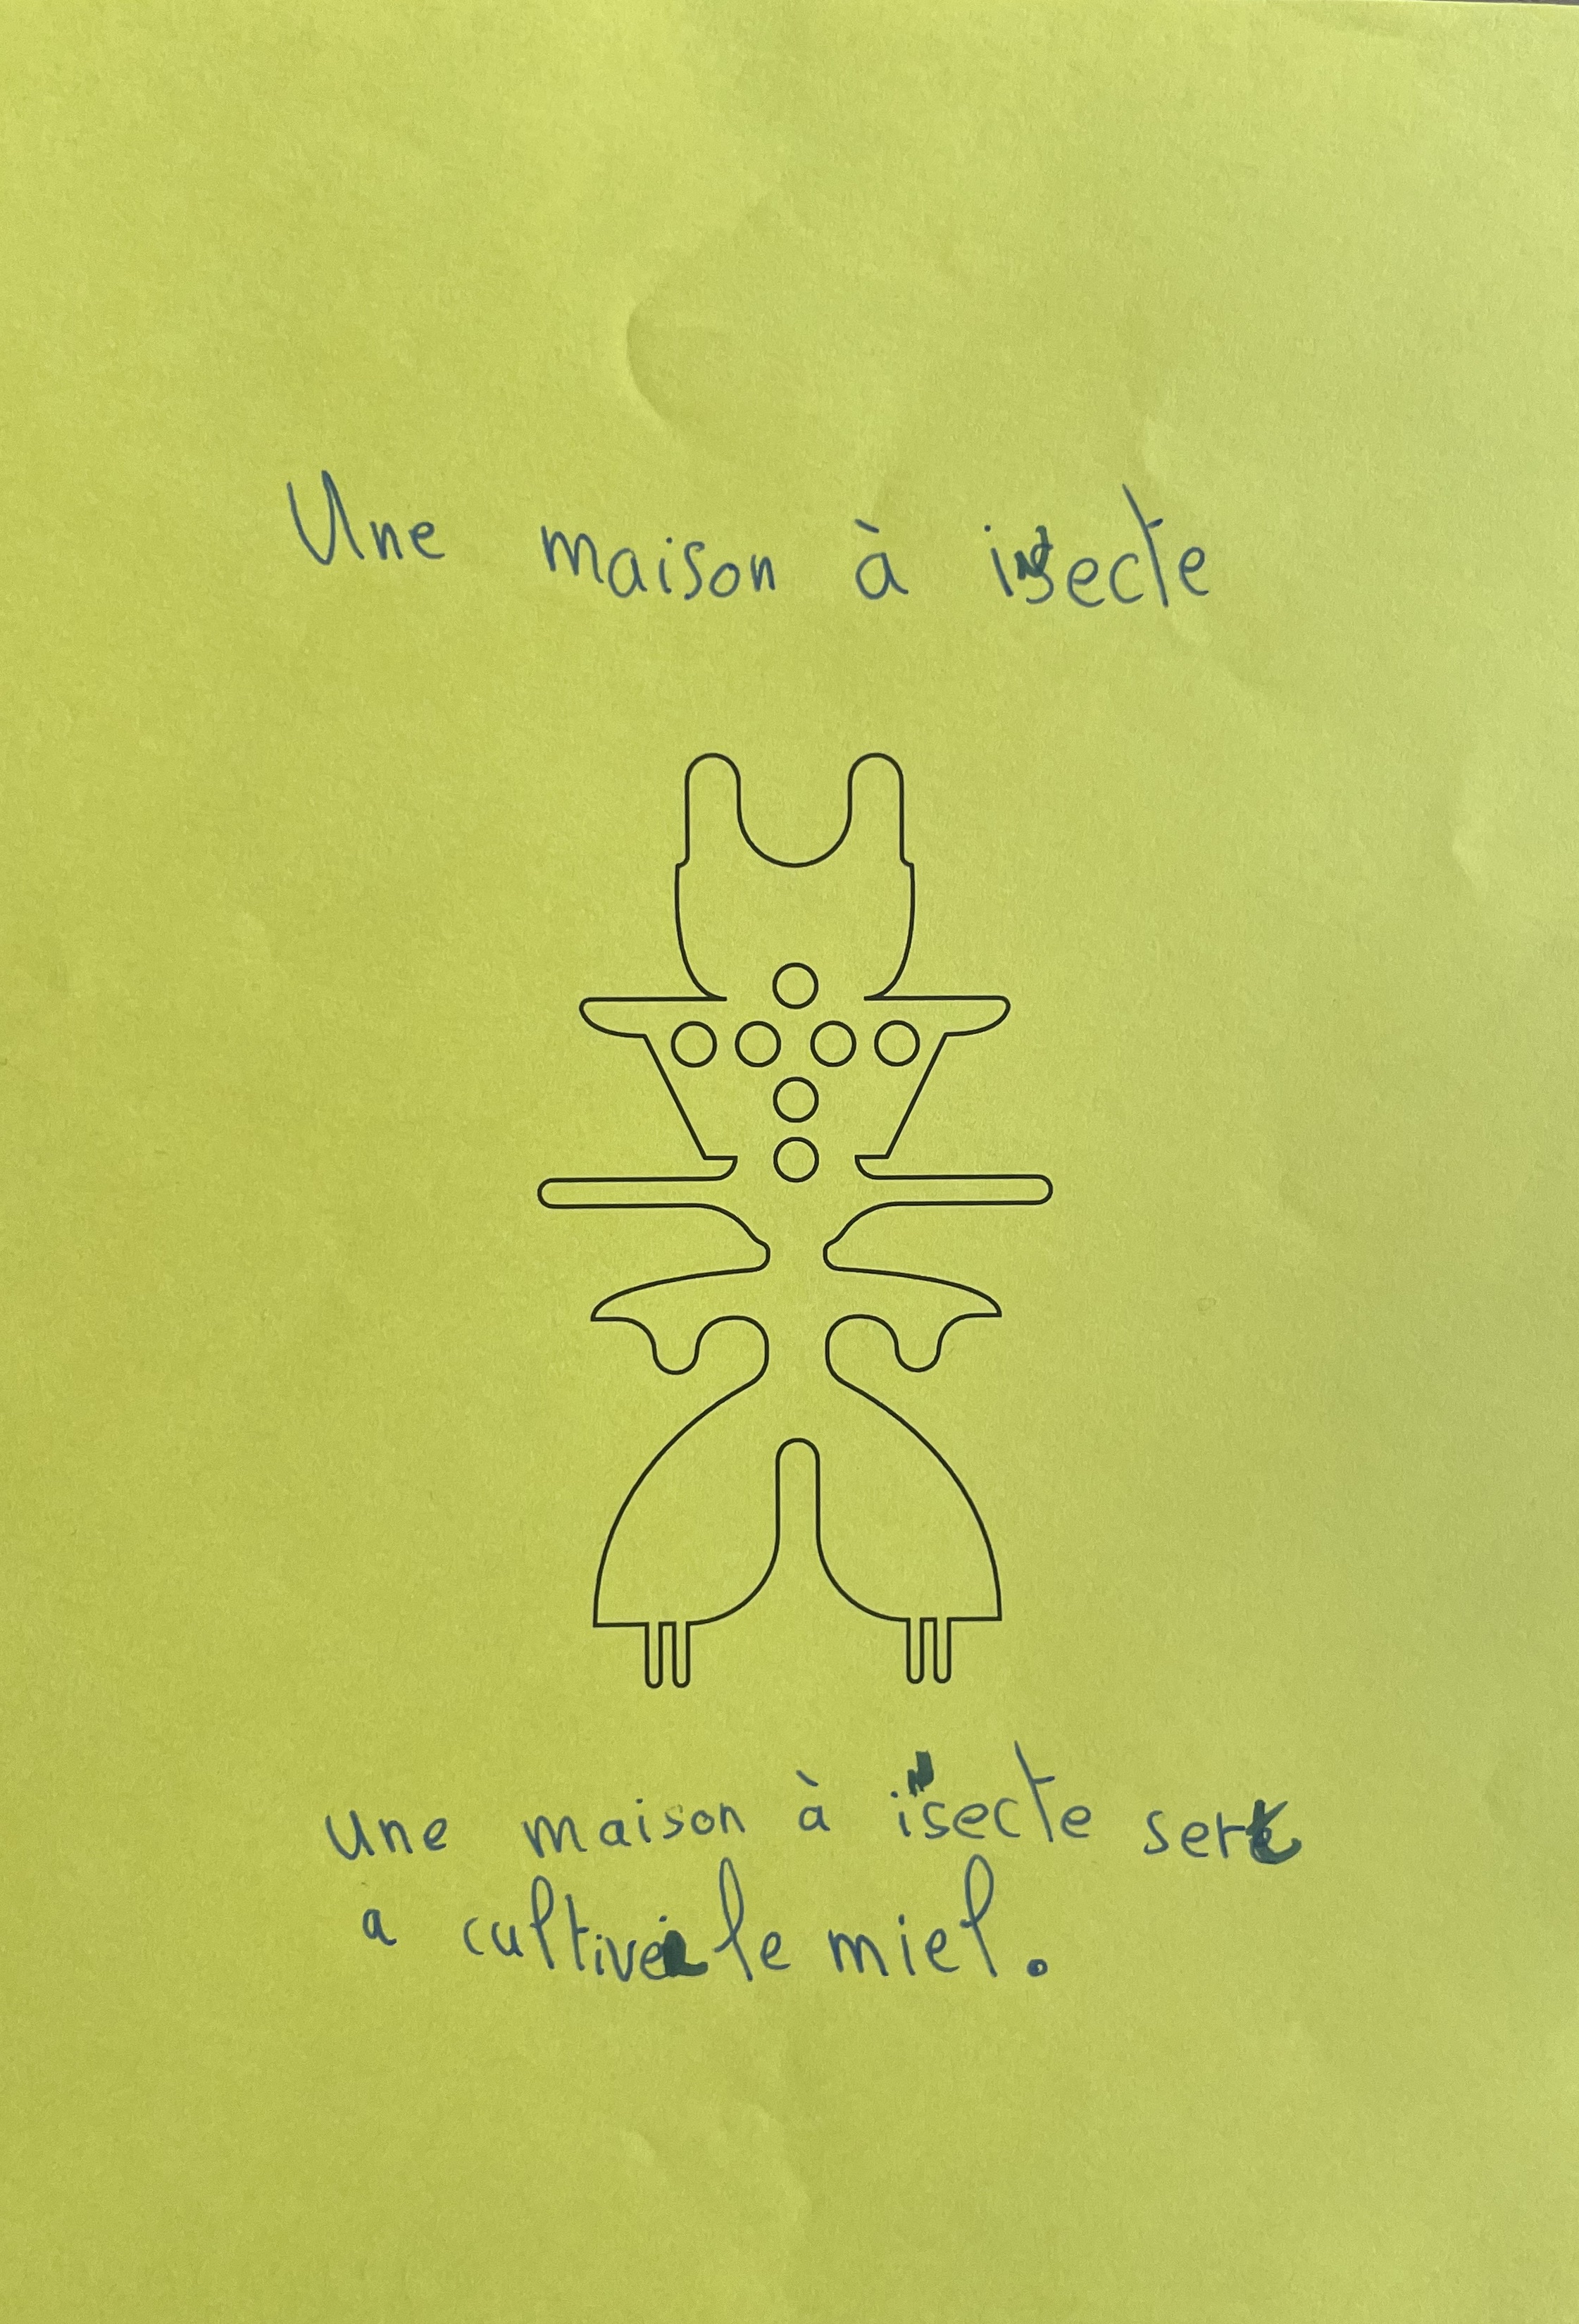 Une maison à insecte
une maison à insecte sert
a cultiver le miel.